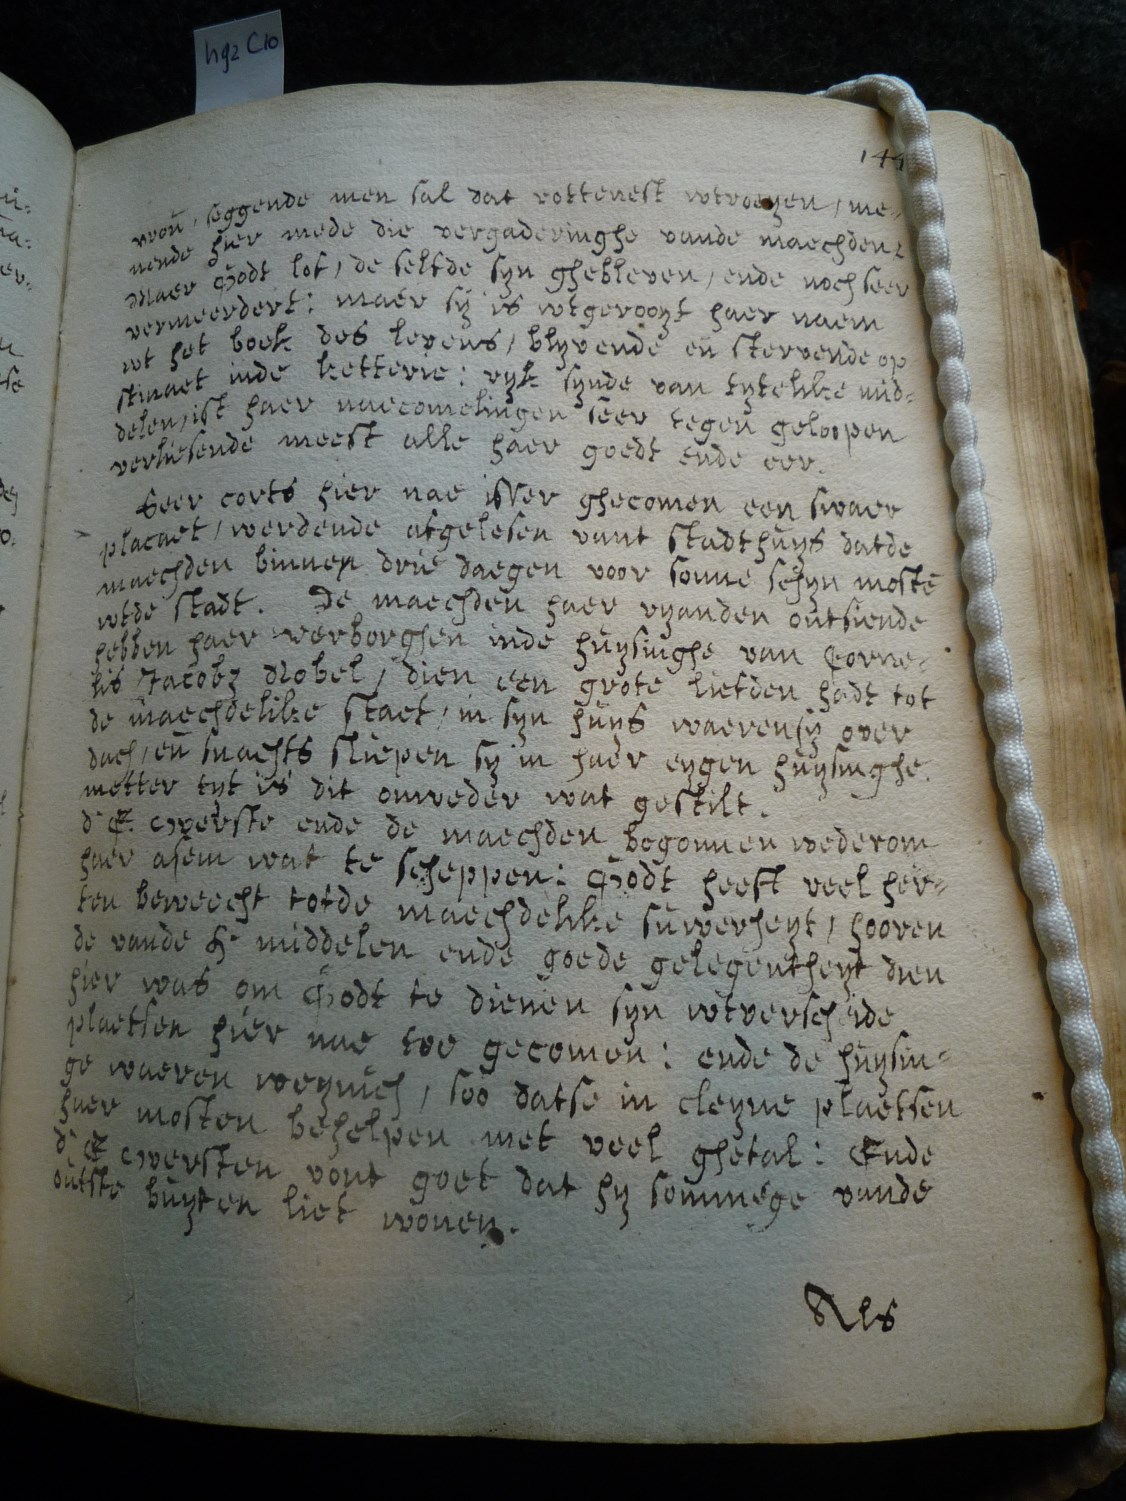 hg2 C10
144
vrou, seggende men sal dat rottenest wtroeyen, me-
nende hier mede die vergaderinghe vande maechden:
Maer Godt lof, de selfde syn ghebleven, ende noch seer
vermeerdert: maer sy is wtgerooyt haer naem
wt het boek des levens, blyvende en stervende op
stinaet inde ketterie: ryk synde van tytelike mid-
delen, ist haer naecomelingen seer tegen geloopen
verliesende meest alle haer goedt ende eer.
Seer corts hier nae isser ghecomen een swaer
placaet, werdende afgelesen vant stadthuys datde
maechden binnen drie daegen voor sonne schyn moste
wtde stadt. De maechden haer vyanden ontsiende
hebben haer verborghen inde huysinghe van Corne-
lis Jacobz Nobel, dien een grote liefden hadt tot
de maechdelike staet, in syn huys waeren sy over
dach, en snachts sliepen sy in haer eygen huysinghe.
metter tyt is dit onweder wat gestilt.
d'E. Overste ende de maechden begonnen wederom
haer asem wat te scheppen: Godt heeft veel her-
ten beweecht totde maechdelike suwerheyt, hooren
de vande H. middelen ende goede gelegentheyt dien
hier was om Godt te dienen syn wtverscheide
plaetsen hier nae toe gecomen: ende de huysin-
ge waeren weynich, soo datse in cleyne plaetsen
haer mosten behelpen met veel ghetal: Ende
d'E Oversten vont goet dat hy sommege vande
outste buyten liet wonen.
Als